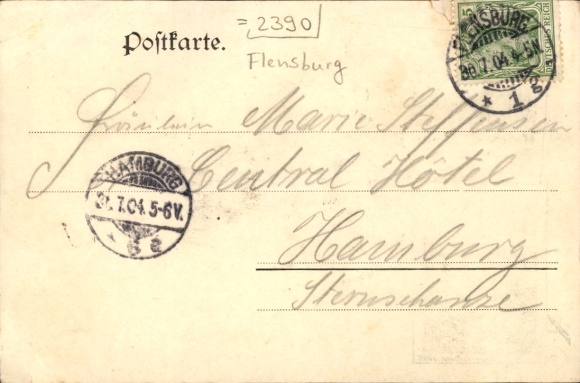 = 2390
Postkarte.
Flensburg
5
DEUTSCHES REICH
FLENSBURG
30.7.04. 4-5N.
* 1 g
Fräulein Marie Steffensen
Central Hôtel
HAMBURG
31.7.04. 5-6V.
Hamburg
Sternschanze